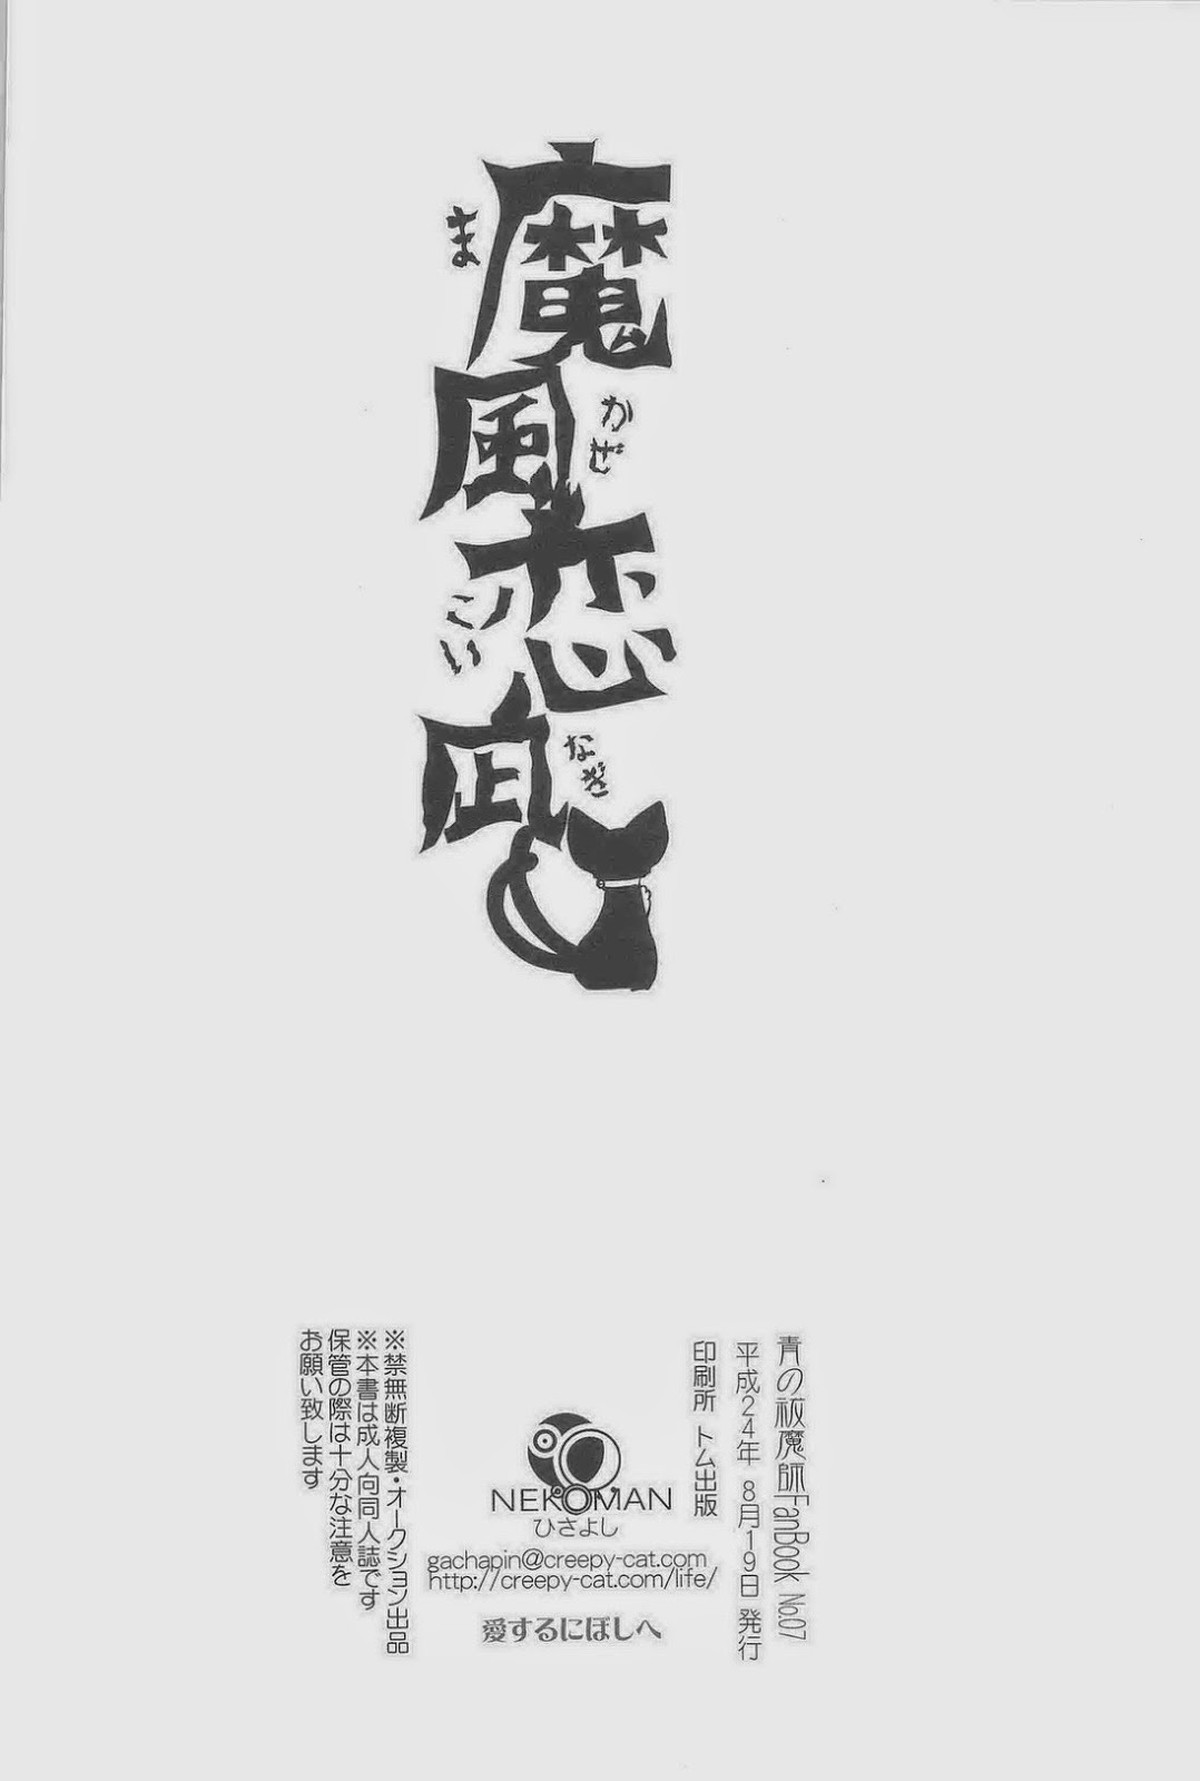 魔風恋凪
ま
かぜ
こい
なぎ
青の祓魔師FanBook No.07
平成24年 8月19日 発行
印刷所 トム出版
NEKOMAN
ひさよし
gachapin@creepy-cat.com
http://creepy-cat.com/life/
愛するにぼしへ
※禁無断複製・オークション出品
※本書は成人向同人誌です
保管の際は十分な注意を
お願い致します